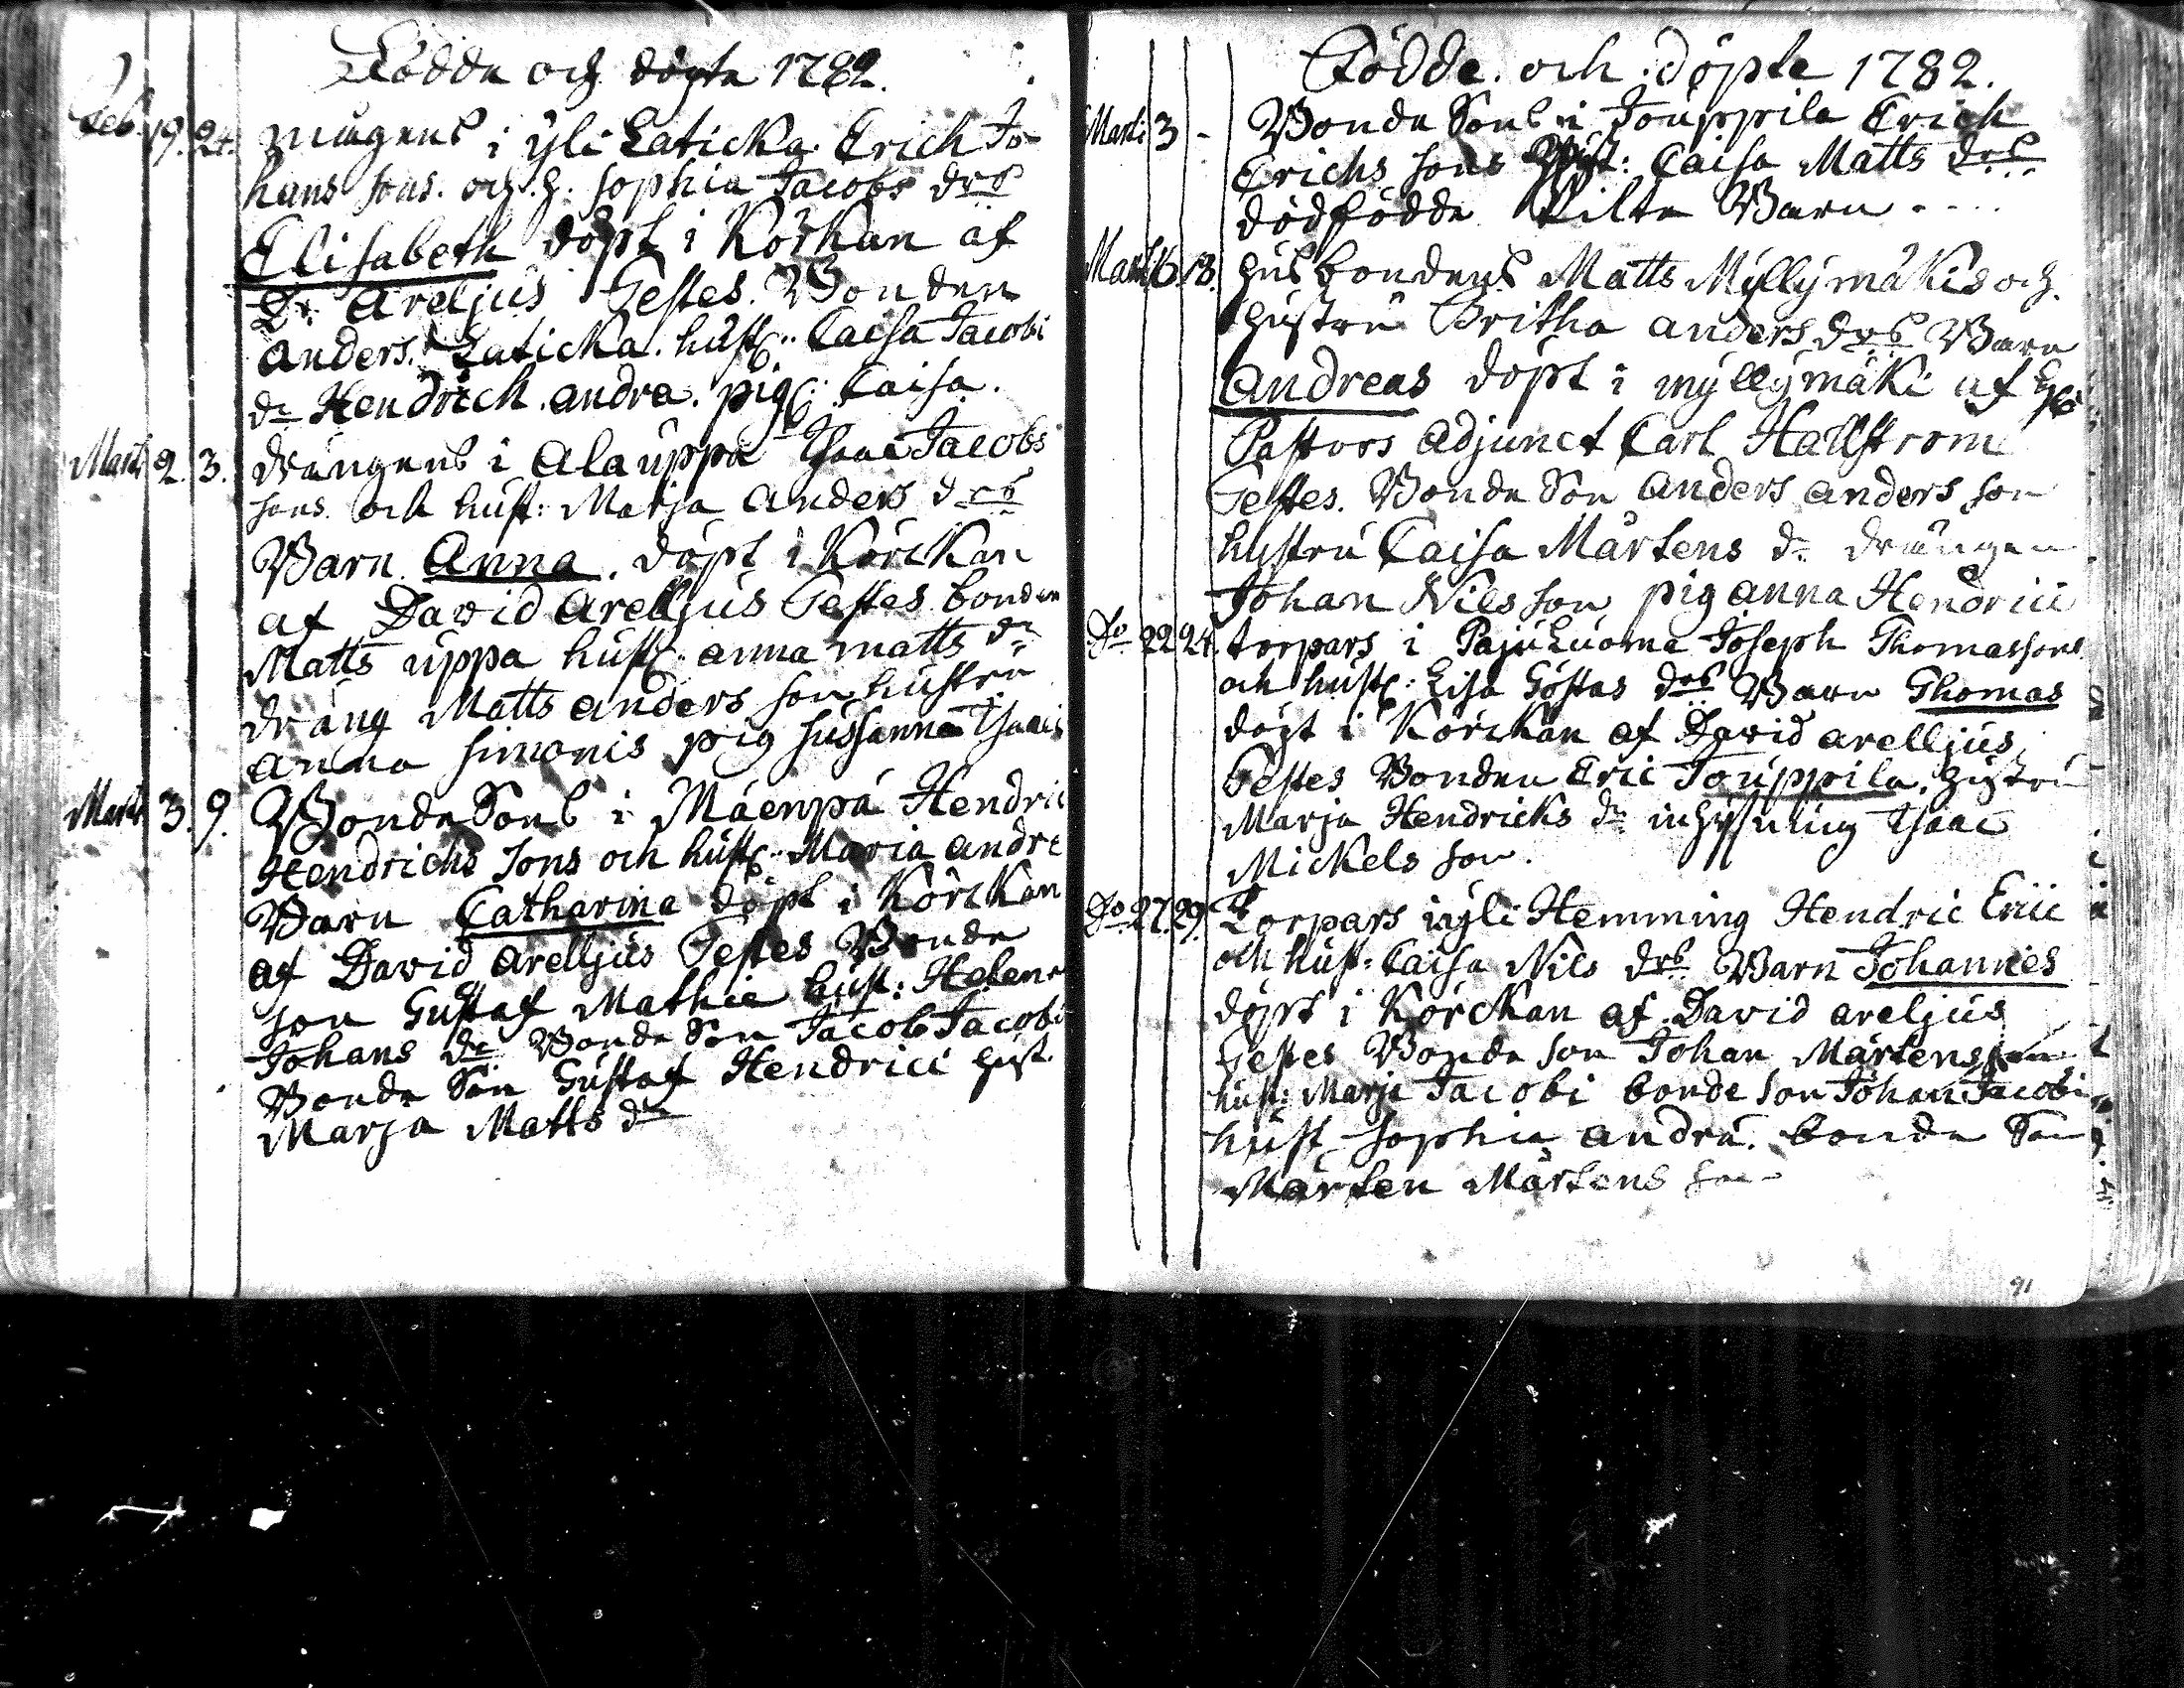 Födde och döpte 1782.
Feb. 19. 24. mågens i yli Laticka Erich Jo-
hans sons. och. h. sophia Jacobs drs
Elisabeth döpt i Körkan af
D: areljus Testes. Bonden
anders. Laticka. hust: Caisa Jacobi
dr Hendrich. andra. pig: Caisa.
Marti 2. 3. drängens i Alauppa Isaac Jacobs
sons. och hust: Marja Anders drs
Barn Anna. döpt i Körckan
af David Arelljus Testes bonden
Matts uppa hust: anna matts dr
dräng Matts anders son hustru
anna simonis pig sussanna Isaacs
Marti 3. 9. Bonde Sons i Mäenpä Hendric
Hendrichs Sons och hust: Maria andre
Barn Catharina döpt i Körckan
af David Arelljus Testes Bonde
son Gustaf Mathie hust: Helena
Johans dr Bonde Son Jacob Jacobi
Bonde Son Gustaf Hendrici hust.
Marja Matts dr
Födde. och döpte 1782.
Marti 3 - Bonde Sons i Jouppila Erich
Erichs sons Hust: Caisa Matts drs
dödfödde Pilte Barn ....
Marti 16. 18. husbondens Matts Myllymäkis och.
hustru Britha anders drs Barn
Andreas döpt i myllymäki af
Pastors Adjunct Carl Hallstrom
Testes. Bonde Son Anders anders son
hustru Caisa Mårtens dr drängen
Johan Nils son pig anna Hendrici
Do 22 24. torpars i Pajuluoma Joseph Thomassons
och hust: Lisa Göstas drs Barn Thomas
döpt i Körckan af David arelljus,
Testes Bonden Eric Jouppila. hustru
Marja Hendricks dr inhysning Isaac
Mickels son.
Do 27. 29. Torpars i yli Hemming Hendric Eric
och hust: Caisa Nils drs Barn Johannes
döpt i Körckan af David areljus
Testes Bonde son Johan Mårtens son
hust: Marja Jacobi bonde son Johan Jacobi
hust sophia andra. bonde Son
Mårten Mårtens son
91